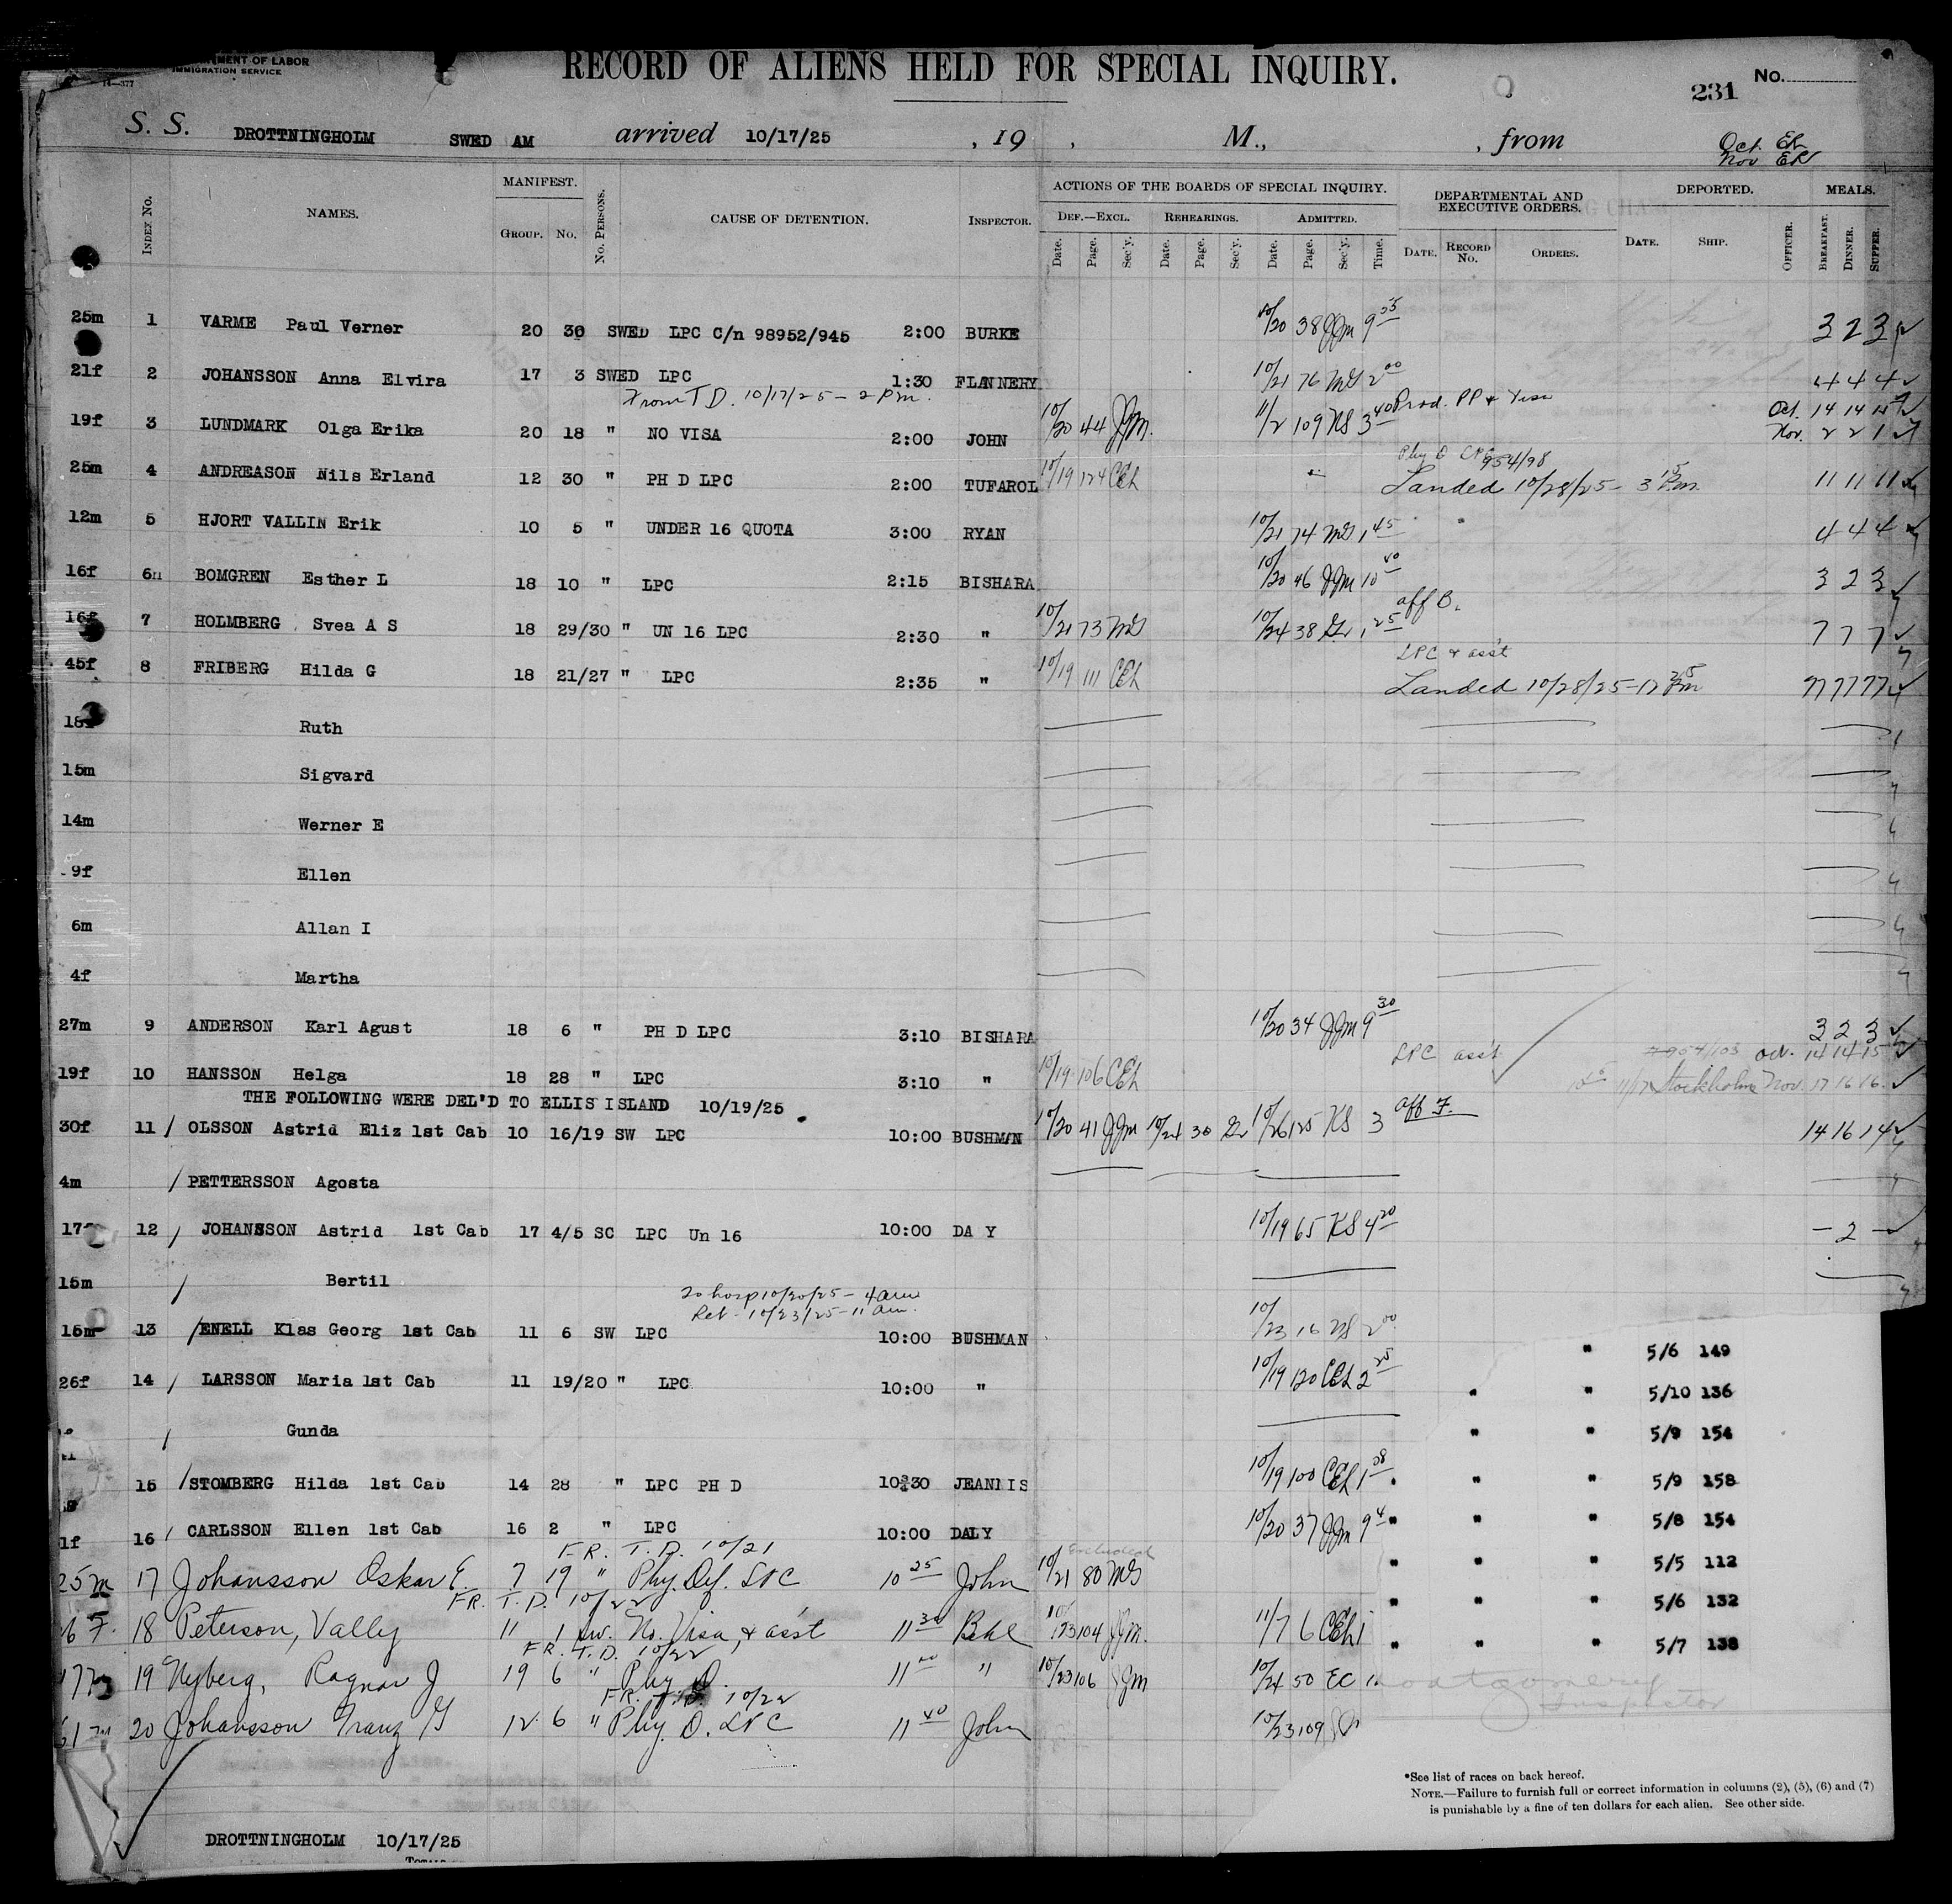 MENT OF LABOR
IMMIGRATION SERVICE
14—377
RECORD OF ALIENS HELD FOR SPECIAL INQUIRY.
No.
231
S. S. DROTTNINGHOLM SWED AM arrived 10/17/25 , 19 , M., , from
Oct. ER
Nov ER
INDEX No. NAMES. MANIFEST. GROUP. No. No. PERSONS. CAUSE OF DETENTION. INSPECTOR. ACTIONS OF THE BOARDS OF SPECIAL INQUIRY. DEF.—EXCL. Date. Page. Sec'y. REHEARINGS. Date. Page. Sec'y. ADMITTED. Date. Page. Sec'y. Time. DEPARTMENTAL AND EXECUTIVE ORDERS. DATE. RECORD No. ORDERS. DEPORTED. DATE. SHIP. OFFICER. MEALS. BREAKFAST. DINNER. SUPPER.
25m 1 VARME Paul Verner 20 30 SWED LPC C/n 98952/945 2:00 BURKE 10/20 38 JJm 9 35 3 2 3
21f 2 JOHANSSON Anna Elvira 17 3 SWED LPC 1:30 FLANNERY 10/21 76 MG 2 00 4 4 4
From T D. 10/17/25 - 2 Pm.
19f 3 LUNDMARK Olga Erika 20 18 " NO VISA 2:00 JOHN 10/20 44 JJm. 11/2 109 KS 3 40 Prod. PP & Visa Oct. 14 14 14
Nov. 2 2 1
25m 4 ANDREASON Nils Erland 12 30 " PH D LPC 2:00 TUFAROL 10/19 124 CEL Phy D LPC 954/98
Landed 10/28/25 - 3 15 Pm. 11 11 11
12m 5 HJORT VALLIN Erik 10 5 " UNDER 16 QUOTA 3:00 RYAN 10/21 74 MG 1 45 4 4 4
16f 6 BOMGREN Esther L 18 10 " LPC 2:15 BISHARA 10/20 46 JJm 10 40 3 2 3
16f 7 HOLMBERG Svea A S 18 29/30 " UN 16 LPC 2:30 " 10/21 73 MG 10/24 38 Gr 1 25 aff B. 7 7 7
45f 8 FRIBERG Hilda G 18 21/27 " LPC 2:35 " 10/19 111 CEL LPC & ass't
Landed 10/28/25 - 12 25 Pm 77 77 77
18f Ruth
15m Sigvard
14m Werner E
9f Ellen
6m Allan I
4f Martha
27m 9 ANDERSON Karl Agust 18 6 " PH D LPC 3:10 BISHARA 10/20 34 JJm 9 30 3 2 3
19f 10 HANSSON Helga 18 28 " LPC 3:10 " 10/19 106 CEL LPC ass't 954/103 Oct. 14 14 15
11/17 Stockholm Nov. 17 16 16
THE FOLLOWING WERE DEL'D TO ELLIS ISLAND 10/19/25
30f 11 / OLSSON Astrid Eliz 1st Cab 10 16/19 SW LPC 10:00 BUSHMAN 10/20 41 JJm 10/24 30 Gr 10/26 125 KS 3 aff F. 14 16 14
4m / PETTERSSON Agosta
17f 12 / JOHANSSON Astrid 1st Cab 17 4/5 SC LPC Un 16 10:00 DA Y 10/19 65 KS 4 20 — 2 —
15m / Bertil
To hosp 10/20/25 - 4 am
Ret - 10/23/25 - 11 am.
15m 13 / ENELL Klas Georg 1st Cab 11 6 SW LPC 10:00 BUSHMAN 10/23 16 KS 2 00
" 5/6 149
26f 14 / LARSSON Maria 1st Cab 11 19/20 " LPC 10:00 " 10/19 120 CEL 2 25
" " 5/10 136
/ Gunda
" " 5/9 154
15 / STOMBERG Hilda 1st Cab 14 28 " LPC PH D 10:30 JEANNIS 10/19 100 CEL 1 08
" " 5/9 158
1f 16 / CARLSSON Ellen 1st Cab 16 2 " LPC 10:00 DALY 10/20 37 JJm 9 4
" " 5/8 154
FR. T.D. 10/21
Excluded
25m 17 Johansson Oskar E. 7 19 " Phy. Def. LPC 10 25 John 10/21 80 MG
" " 5/5 112
FR. T.D. 10/22
" " 5/6 132
6 F. 18 Peterson, Valley 11 1 Sw. No. Visa, & ass't 11 30 10/23 104 JJm. 11/7 6 CEL 1
" " 5/7 138
FR. T.D. 10/22
17m 19 Nyberg, Ragnar J 19 6 " Phy. D. 11 00 " 10/23 106 JJm 10/24 50 EC
Montgomery
Inspector
FR. T.D. 10/22
61m 20 Johansson Franz G 12 6 " Phy. D. LPC 11 40 John 10/23 109
*See list of races on back hereof.
NOTE.—Failure to furnish full or correct information in columns (2), (5), (6) and (7)
is punishable by a fine of ten dollars for each alien. See other side.
DROTTNINGHOLM 10/17/25